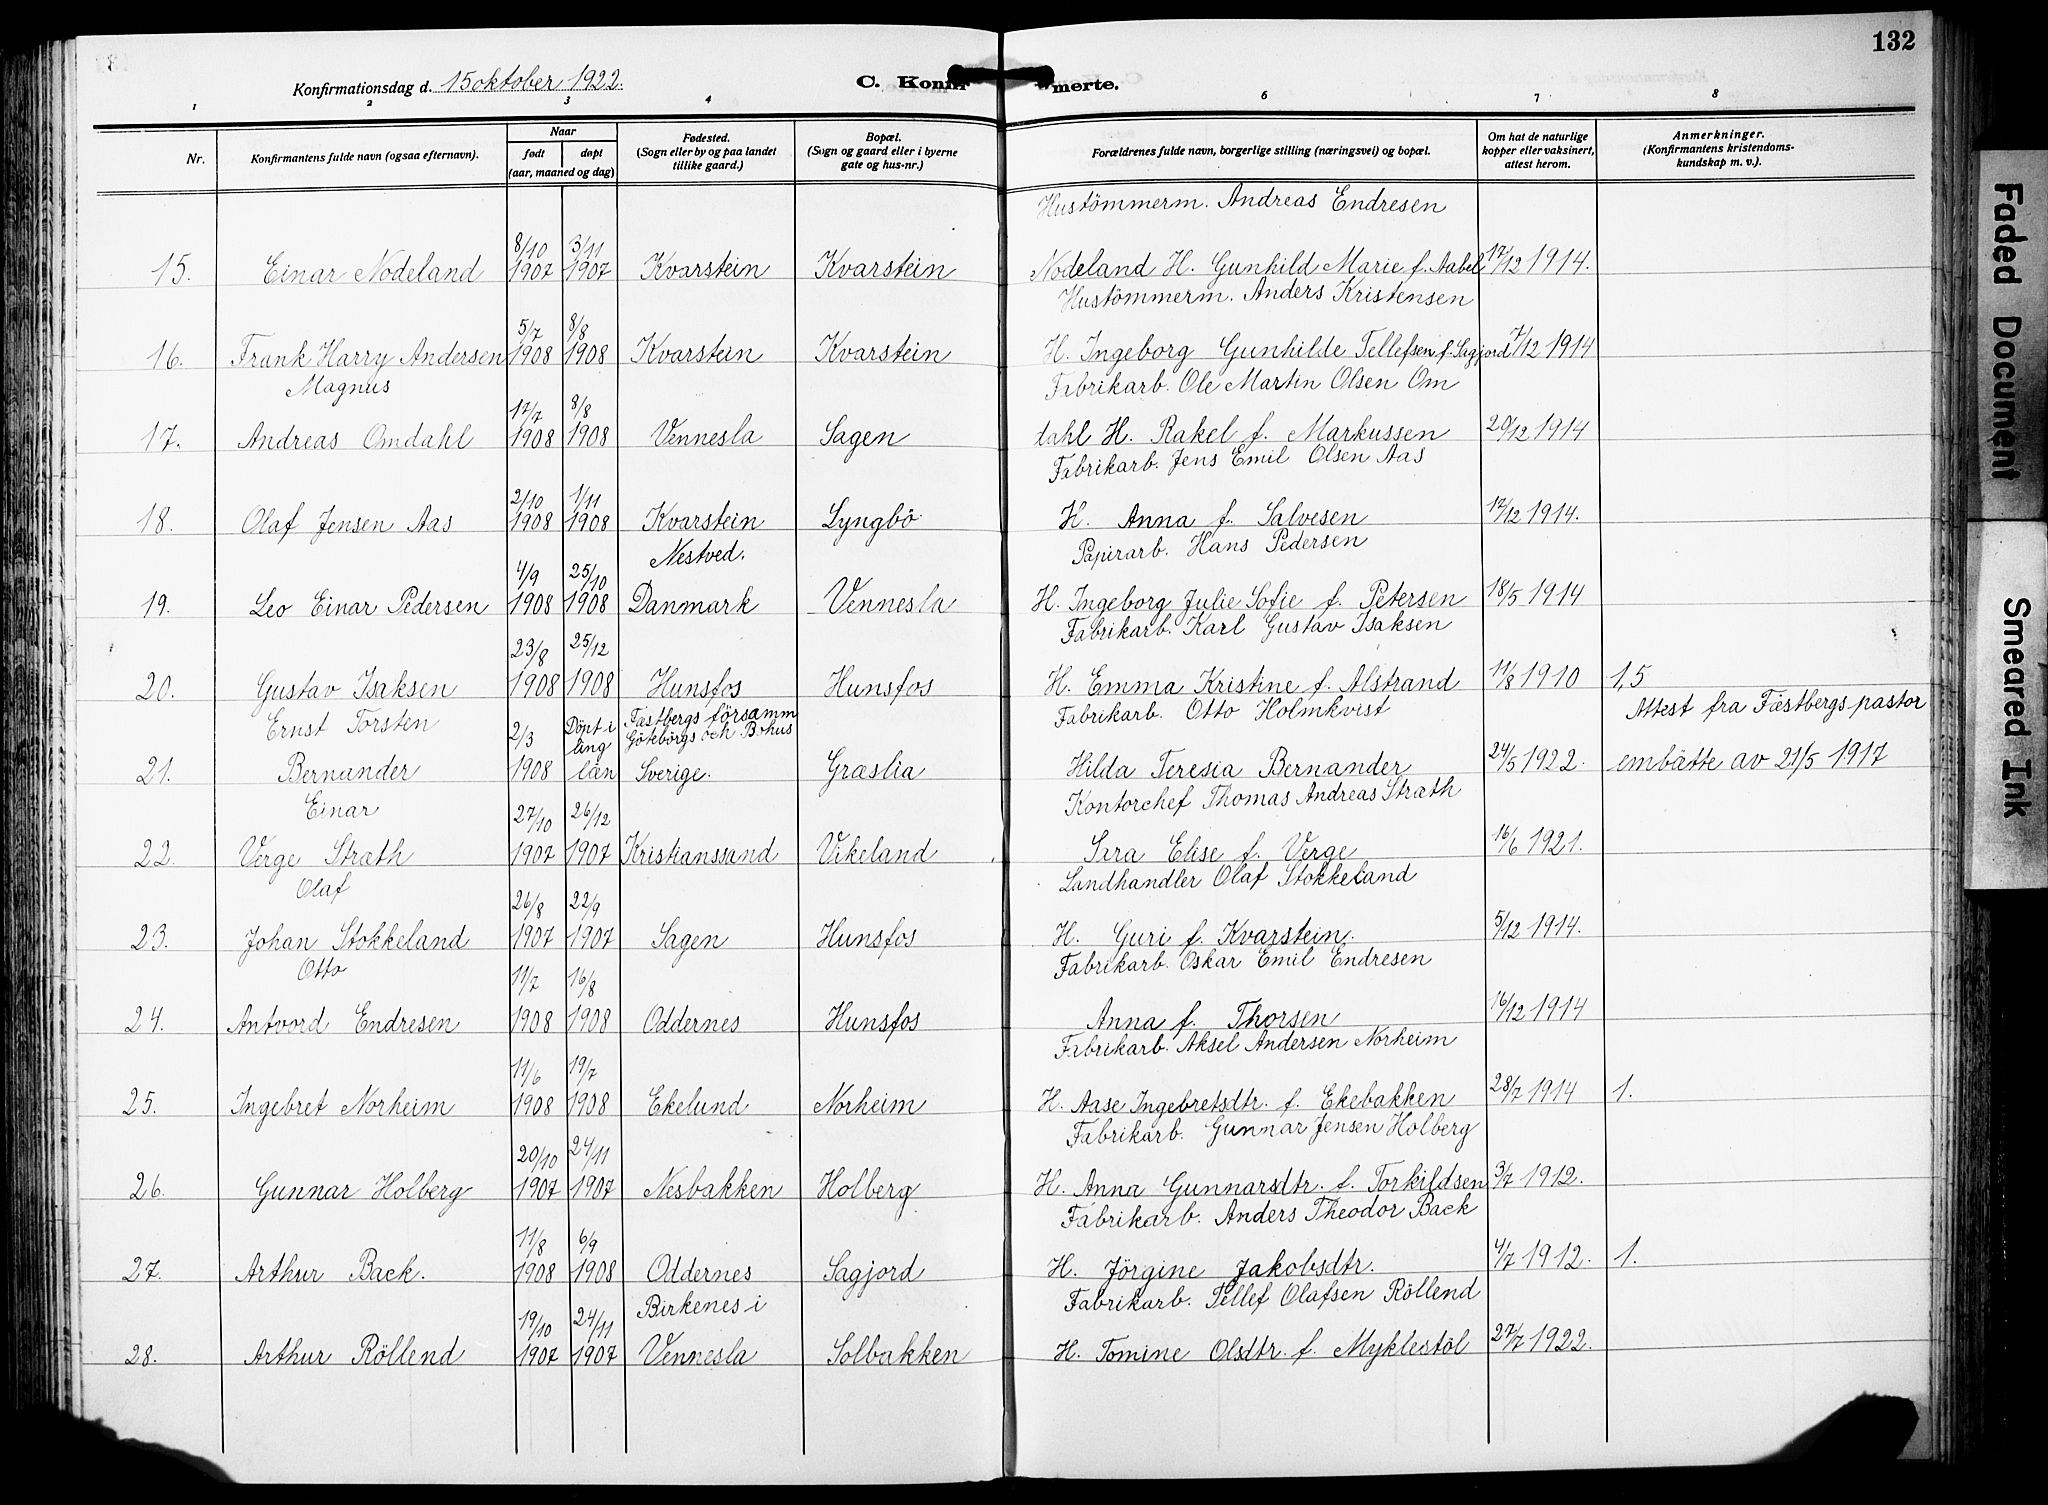 132
Konfirmationsdag d. 15 oktober 1922.
C. Konfir merte.
1 2 3 4 6 7 8
Nr.
Konfirmantens fulde navn (ogsaa efternavn).
Naar
født døpt
(aar, maaned og dag)
Fødested.
(Sogn eller by og paa landet
tillike gaard.)
Bopæl.
(Sogn og gaard eller i byerne
gate og hus-nr.)
Forældrenes fulde navn, borgerlige stilling (næringsvei) og bopæl.
Om hat de naturlige
kopper eller vaksinert,
attest herom.
Anmerkninger.
(Konfirmantens kristendoms-
kundskap m. v.).
Hustömmerm. Andreas Endresen
8/10 3/11
15. Einar Nodeland 1907 1907 Kvarstein Kvarstein Nodeland H. Gunhild Marie f. Aabel 17/12 1914.
Hustömmerm. Anders Kristensen
5/7 8/8
16. Frank Harry Andersen 1908 1908 Kvarstein Kvarstein H. Ingeborg Gunhilde Tellefsen f. Sagjord 7/12 1914
Magnus Fabrikarb. Ole Martin Olsen Om
17/7 8/8
17. Andreas Omdahl 1908 1908 Vennesla Sagen dahl H. Rakel f. Markussen 20/12 1914
Fabrikarb. Jens Emil Olsen Aas
2/10 1/11
18. Olaf Jensen Aas 1908 1908 Kvarstein Lyngbö H. Anna f. Salvesen 17/12 1914.
Nestved. Papirarb. Hans Pedersen
4/9 25/10
19. Leo Einar Pedersen 1908 1908 Danmark Vennesla H. Ingeborg Julie Sofie f. Petersen 18/5 1914
Fabrikarb. Karl Gustav Isaksen
23/8 25/12
20. Gustav Isaksen 1908 1908 Hunsfos Hunsfos H. Emma Kristine f. Alstrand 11/8 1910 1,5
Ernst Torsten 2/3 Döpt i Fästbergs församm Fabrikarb. Otto Holmkvist Attest fra Fæstbergs pastor
ling Göteborgs och Bohus
21. Bernander 1908 län Sverige. Græslia Hilda Teresia Bernander 24/5 1922. embätte av 21/5 1917
Einar Kontorchef Thomas Andreas Stræth
27/10 26/12
22. Verge Stræth 1907 1907 Kristianssand Vikeland Sara Elise f. Verge 16/6 1921.
Olaf Landhandler Olaf Stokkeland
26/8 22/9
23. Johan Stokkeland 1907 1907 Sagen Hunsfos H. Guri f. Kvarstein. 5/12 1914.
Otto Fabrikarb. Oskar Emil Endresen
11/7 16/8
24. Antvord Endresen 1908 1908 Oddernes Hunsfos Anna f. Thorsen 16/12 1914
Fabrikarb. Aksel Andersen Norheim
11/6 19/7
25. Ingebret Norheim 1908 1908 Ekelund Norheim H. Aase Ingebretsdtr. f. Ekebakken 28/7 1914 1.
Fabrikarb. Gunnar Jensen Holberg
20/10 24/11
26. Gunnar Holberg 1907 1907 Nesbakken Holberg H. Anna Gunnarsdtr. f. Torkildsen 3/7 1912.
Fabrikarb. Anders Theodor Back
11/8 6/9
27. Arthur Back. 1908 1908 Oddernes Sagjord H. Jörgine Jakobsdtr. 4/7 1912. 1.
Birkenes i Fabrikarb. Tellef Olafsen Röllend
19/10 24/11
28. Arthur Röllend 1907 1907 Vennesla Solbakken H. Tomine Olsdtr. f. Myklestöl 27/7 1922.
Faded Document
Smeared Ink